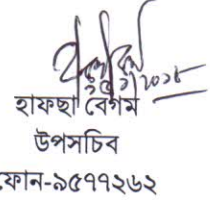 হাফছা বেগম
উপসচিব
ফোন-৯৫৭৭২৬২